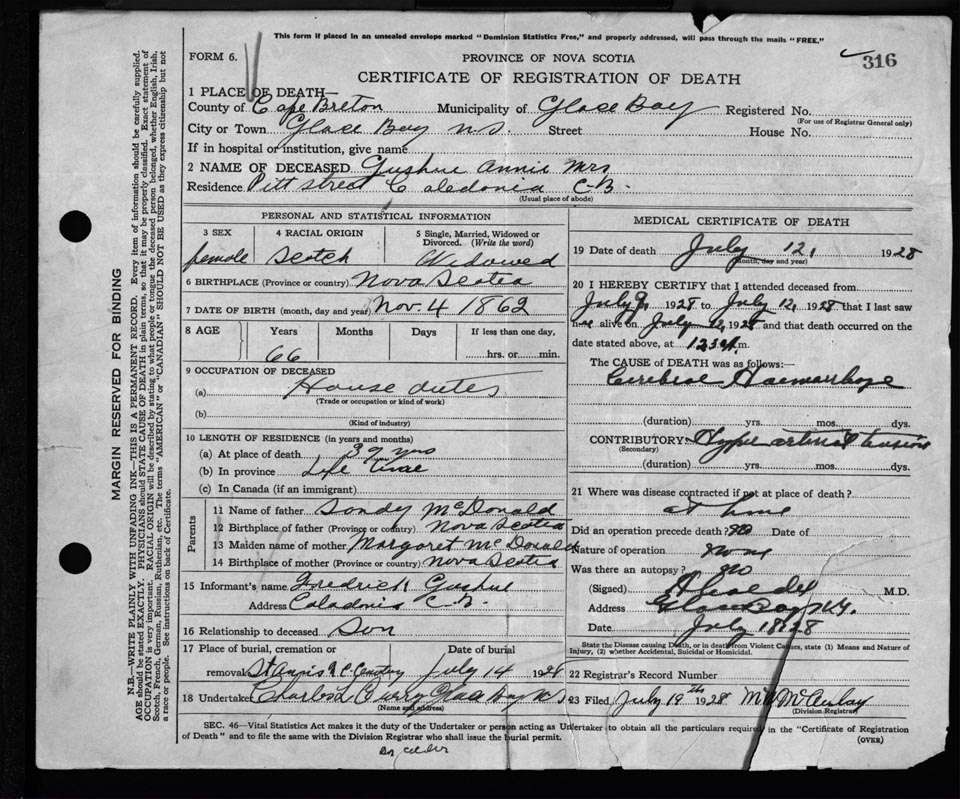 This form if placed in an unsealed envelope marked "Dominion Statistics Free," and properly addressed, will pass through the mails "FREE."
FORM 6.
PROVINCE OF NOVA SCOTIA
316
CERTIFICATE OF REGISTRATION OF DEATH
1 PLACE OF DEATH—
County of Cape Breton Municipality of Glace Bay Registered No.
(For use of Registrar General only)
City or Town Glace Bay N.S. Street House No.
If in hospital or institution, give name
2 NAME OF DECEASED Gushue Annie Mrs
Residence Pitt street Caledonia C-B.
(Usual place of abode)
PERSONAL AND STATISTICAL INFORMATION
3 SEX 4 RACIAL ORIGIN 5 Single, Married, Widowed or Divorced. (Write the word)
female Scotch Widowed
6 BIRTHPLACE (Province or country) Nova Scotia
7 DATE OF BIRTH (month, day and year) Nov. 4 1862
8 AGE Years Months Days If less than one day,
66 hrs. or min.
9 OCCUPATION OF DECEASED
(a) House duties
(Trade or occupation or kind of work)
(b)
(Kind of industry)
10 LENGTH OF RESIDENCE (in years and months)
(a) At place of death 39 yrs
(b) In province Life time
(c) In Canada (if an immigrant)
Parents
11 Name of father Sandy McDonald
12 Birthplace of father (Province or country) Nova Scotia
13 Maiden name of mother Margaret McDonald
14 Birthplace of mother (Province or country) Nova Scotia
15 Informant's name Fredrick Gushue
Address Caladonia C-B.
16 Relationship to deceased Son
17 Place of burial, cremation or Date of burial
removal St Anns R C Cemetery July 14 1928
18 Undertaker Curry Glace Bay N.S.
(Name and address)
MEDICAL CERTIFICATE OF DEATH
19 Date of death July 12, 1928
(Month, day and year)
20 I HEREBY CERTIFY that I attended deceased from
July 9, 1928 to July 12, 1928 that I last saw
her alive on July 12, 1928 and that death occurred on the
date stated above, at m.
The CAUSE of DEATH was as follows:
Cerebral Haemorrhage
(duration) yrs. mos. dys.
CONTRIBUTORY Hyper arterial tension
(Secondary)
(duration) yrs. mos. dys.
21 Where was disease contracted if not at place of death?
at home
Did an operation precede death? No Date of
Nature of operation None
Was there an autopsy? No
(Signed) M.D.
Address Glace Bay N.S.
Date July 18 28
State the Disease causing Death, or in death from Violent Causes, state (1) Means and Nature of Injury, (2) whether Accidental, Suicidal or Homicidal.
22 Registrar's Record Number
23 Filed July 19th 1928 McAulay
(Division Registrar)
SEC. 46—Vital Statistics Act makes it the duty of the Undertaker or person acting as Undertaker to obtain all the particulars required in the "Certificate of Registration
of Death" and to file the same with the Division Registrar who shall issue the burial permit.
(OVER)
MARGIN RESERVED FOR BINDING
N.B.—WRITE PLAINLY WITH UNFADING INK—THIS IS A PERMANENT RECORD. Every item of information should be carefully supplied.
AGE should be stated EXACTLY. PHYSICIANS should STATE CAUSE OF DEATH in plain terms, so that it may be properly classified. Exact statement of
OCCUPATION is very important. RACIAL ORIGIN will be described by stating to what people or tongue the deceased person belonged, whether English, Irish,
Scotch, French, German, Russian, Ruthenian, etc. The terms "AMERICAN" or "CANADIAN" SHOULD NOT BE USED as they express citizenship but not
a race or people. See instructions on back of Certificate.